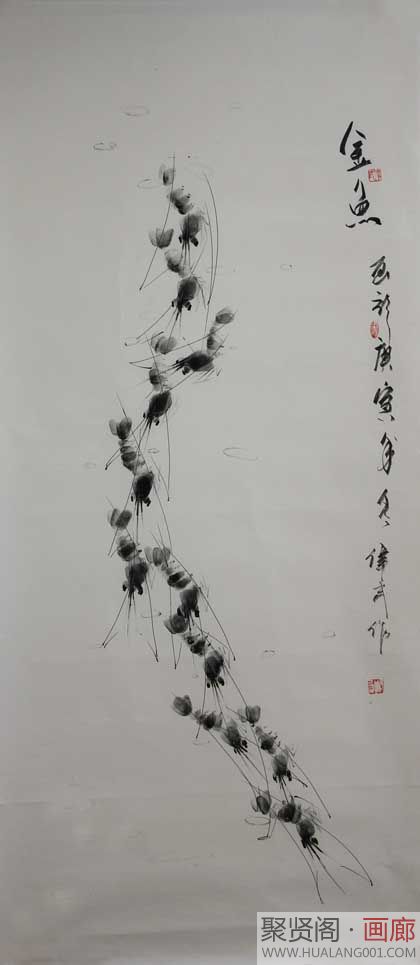 金魚 画於庚寅年冬 作
聚贤阁·画廊
WWW.HUALANG001.COM